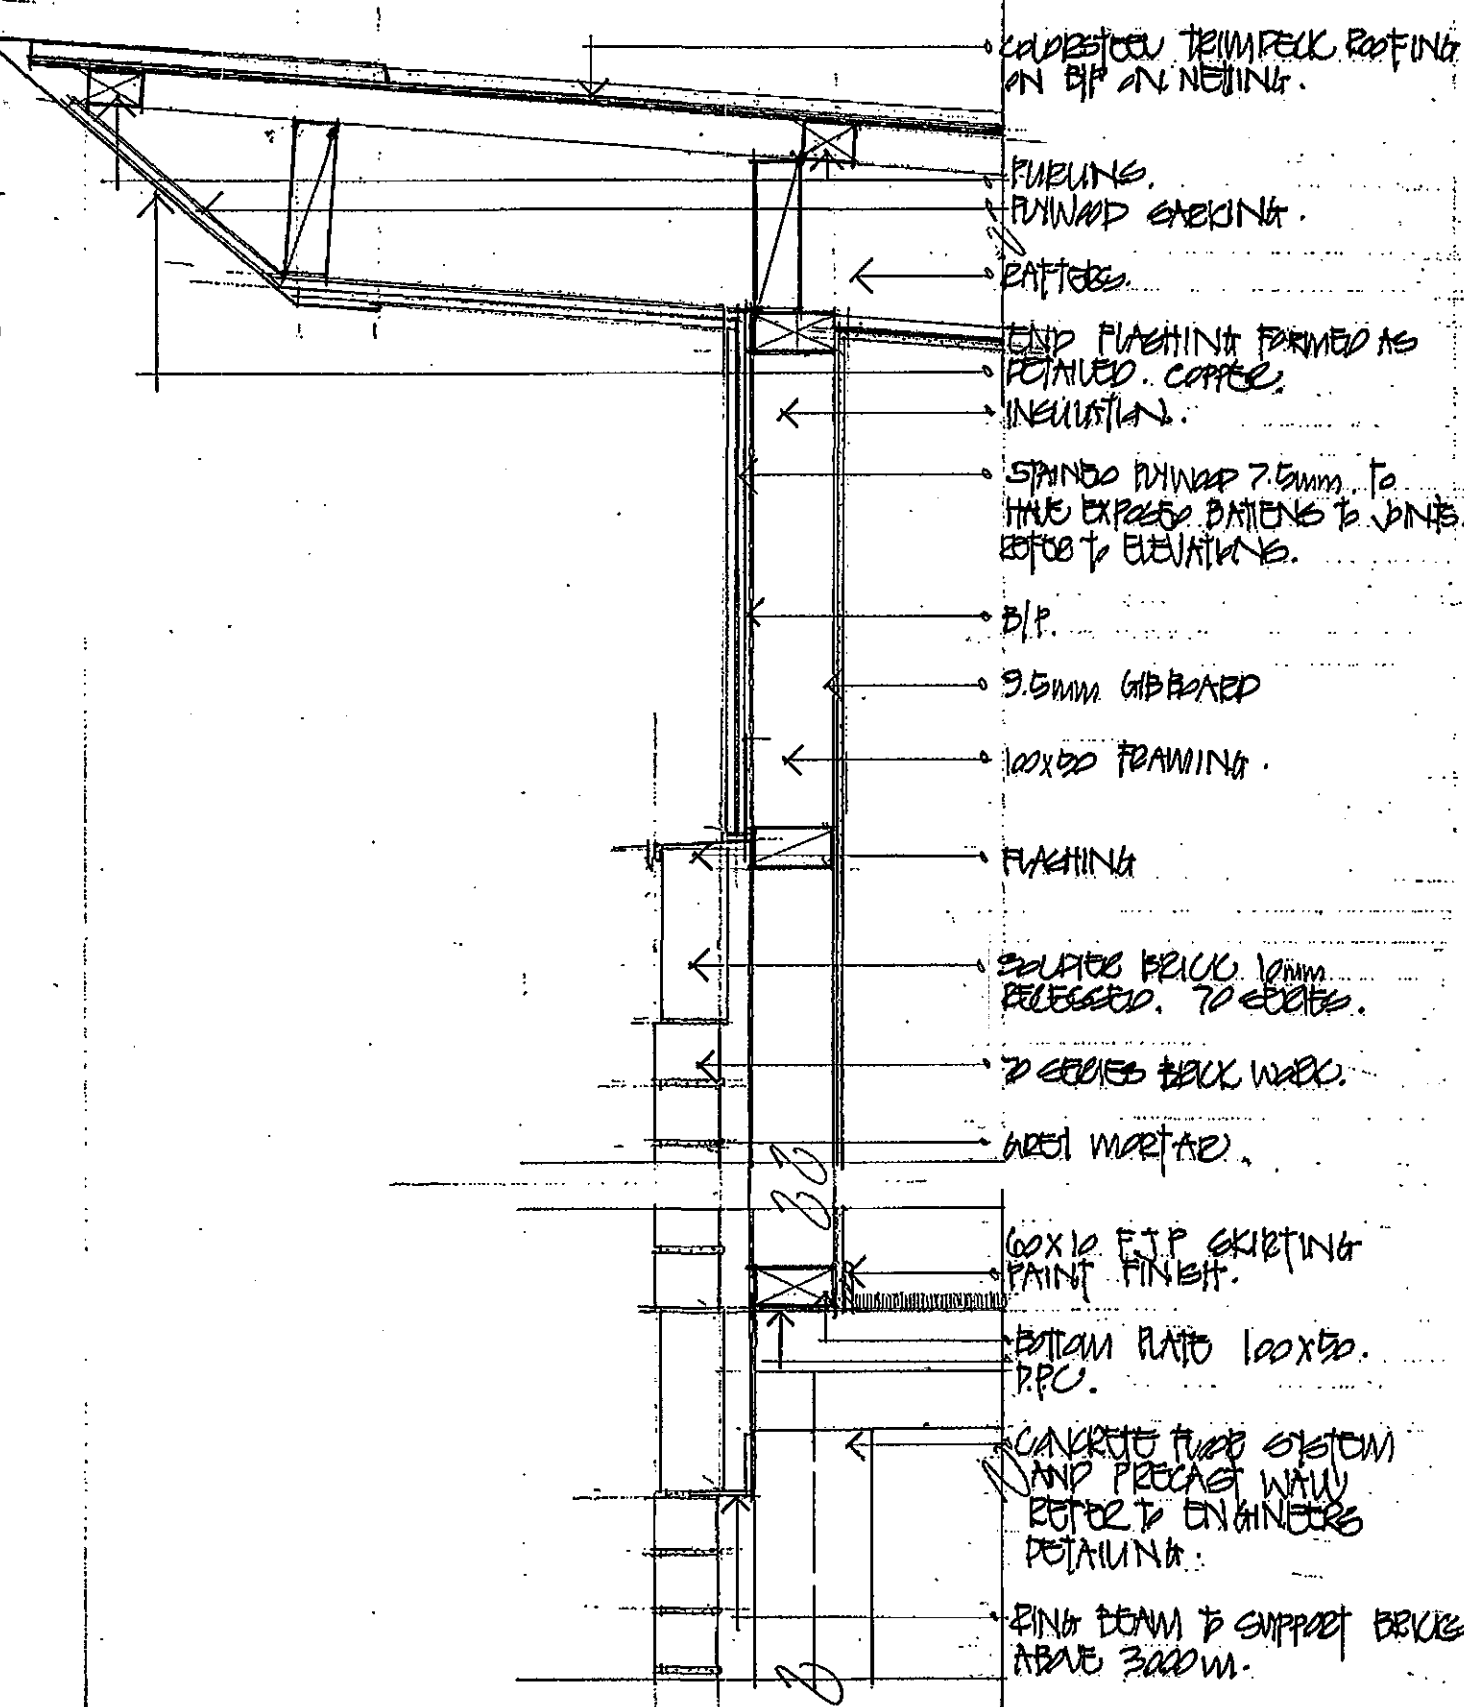 COLORSTEEL TRIMDECK ROOFING
ON B/P ON NETTING.
PURLINS.
PLYWOOD SARKING.
RAFTERS.
END FLASHING FORMED AS
DETAILED. COPPER.
INSULATION.
STAINED PLYWOOD 7.5mm. TO
HAVE EXPOSED BATTENS TO JOINTS.
REFER TO ELEVATIONS.
B/P.
9.5mm GIBBOARD
100x50 FRAMING.
FLASHING
SOLDIER BRICK 10mm
RECESSED. 70 SERIES.
70 SERIES BRICK WORK.
GREY MORTAR.
60x10 F.J.P SKIRTING
PAINT FINISH.
BOTTOM PLATE 100x50.
D.P.C.
CONCRETE FLOOR SYSTEM
AND PRECAST WALL
REFER TO ENGINEERS
DETAILING.
RING BEAM TO SUPPORT BRICKS
ABOVE 3000m.